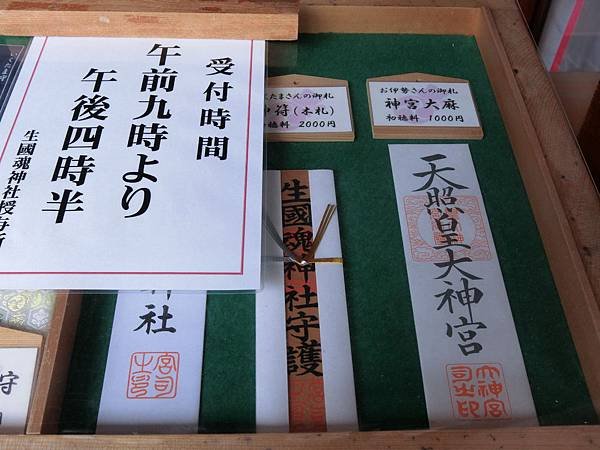 受付時間
午前九時より
午後四時半
生國魂神社授与所
たまさんの御札
神符(木札)
初穂料 2000円
お伊勢さんの御札
神宮大麻
初穂料 1000円
天照皇大神宮
生國魂神社守護
神社
守